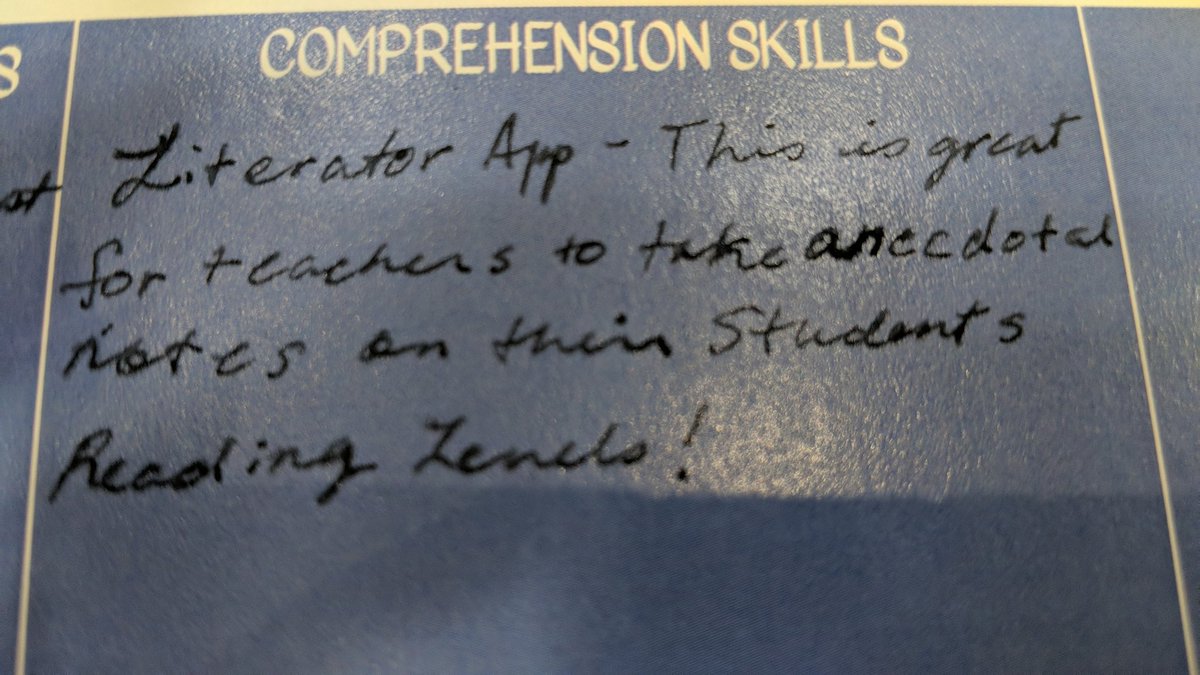 COMPREHENSION SKILLS
Literator App - This is great
for teachers to take anecdotal
notes on their Students
Reading Levels!